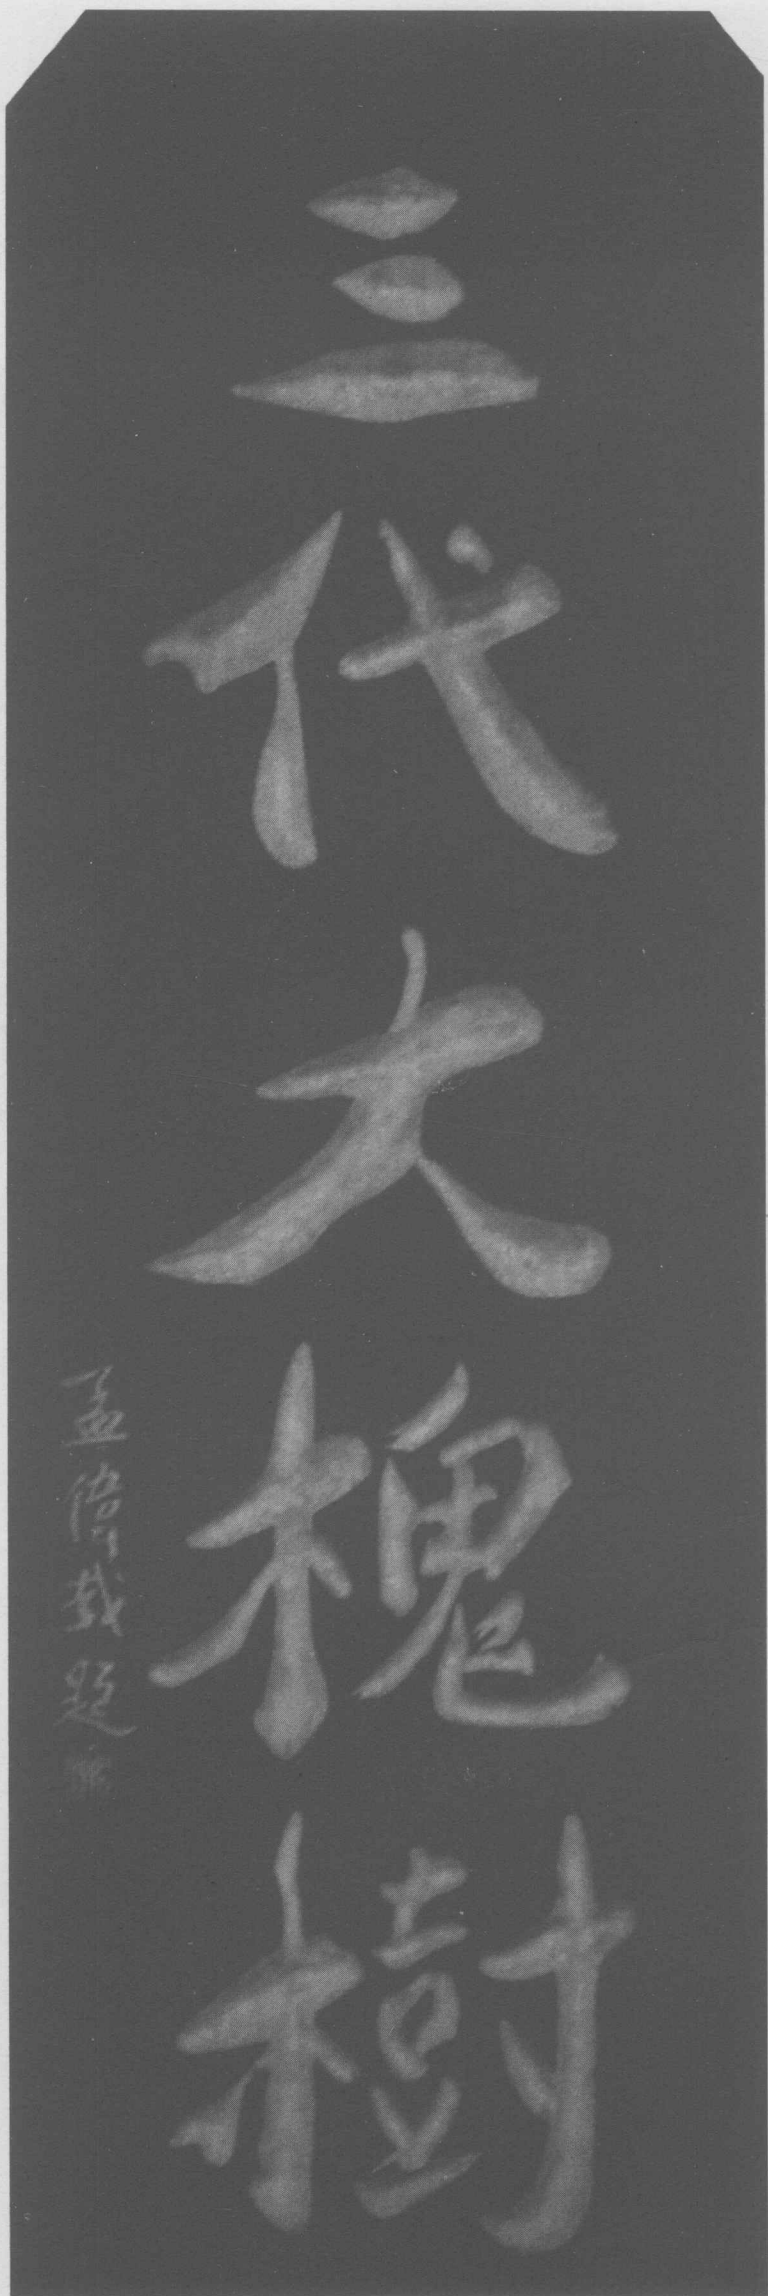 三代大槐樹
孟偉哉題